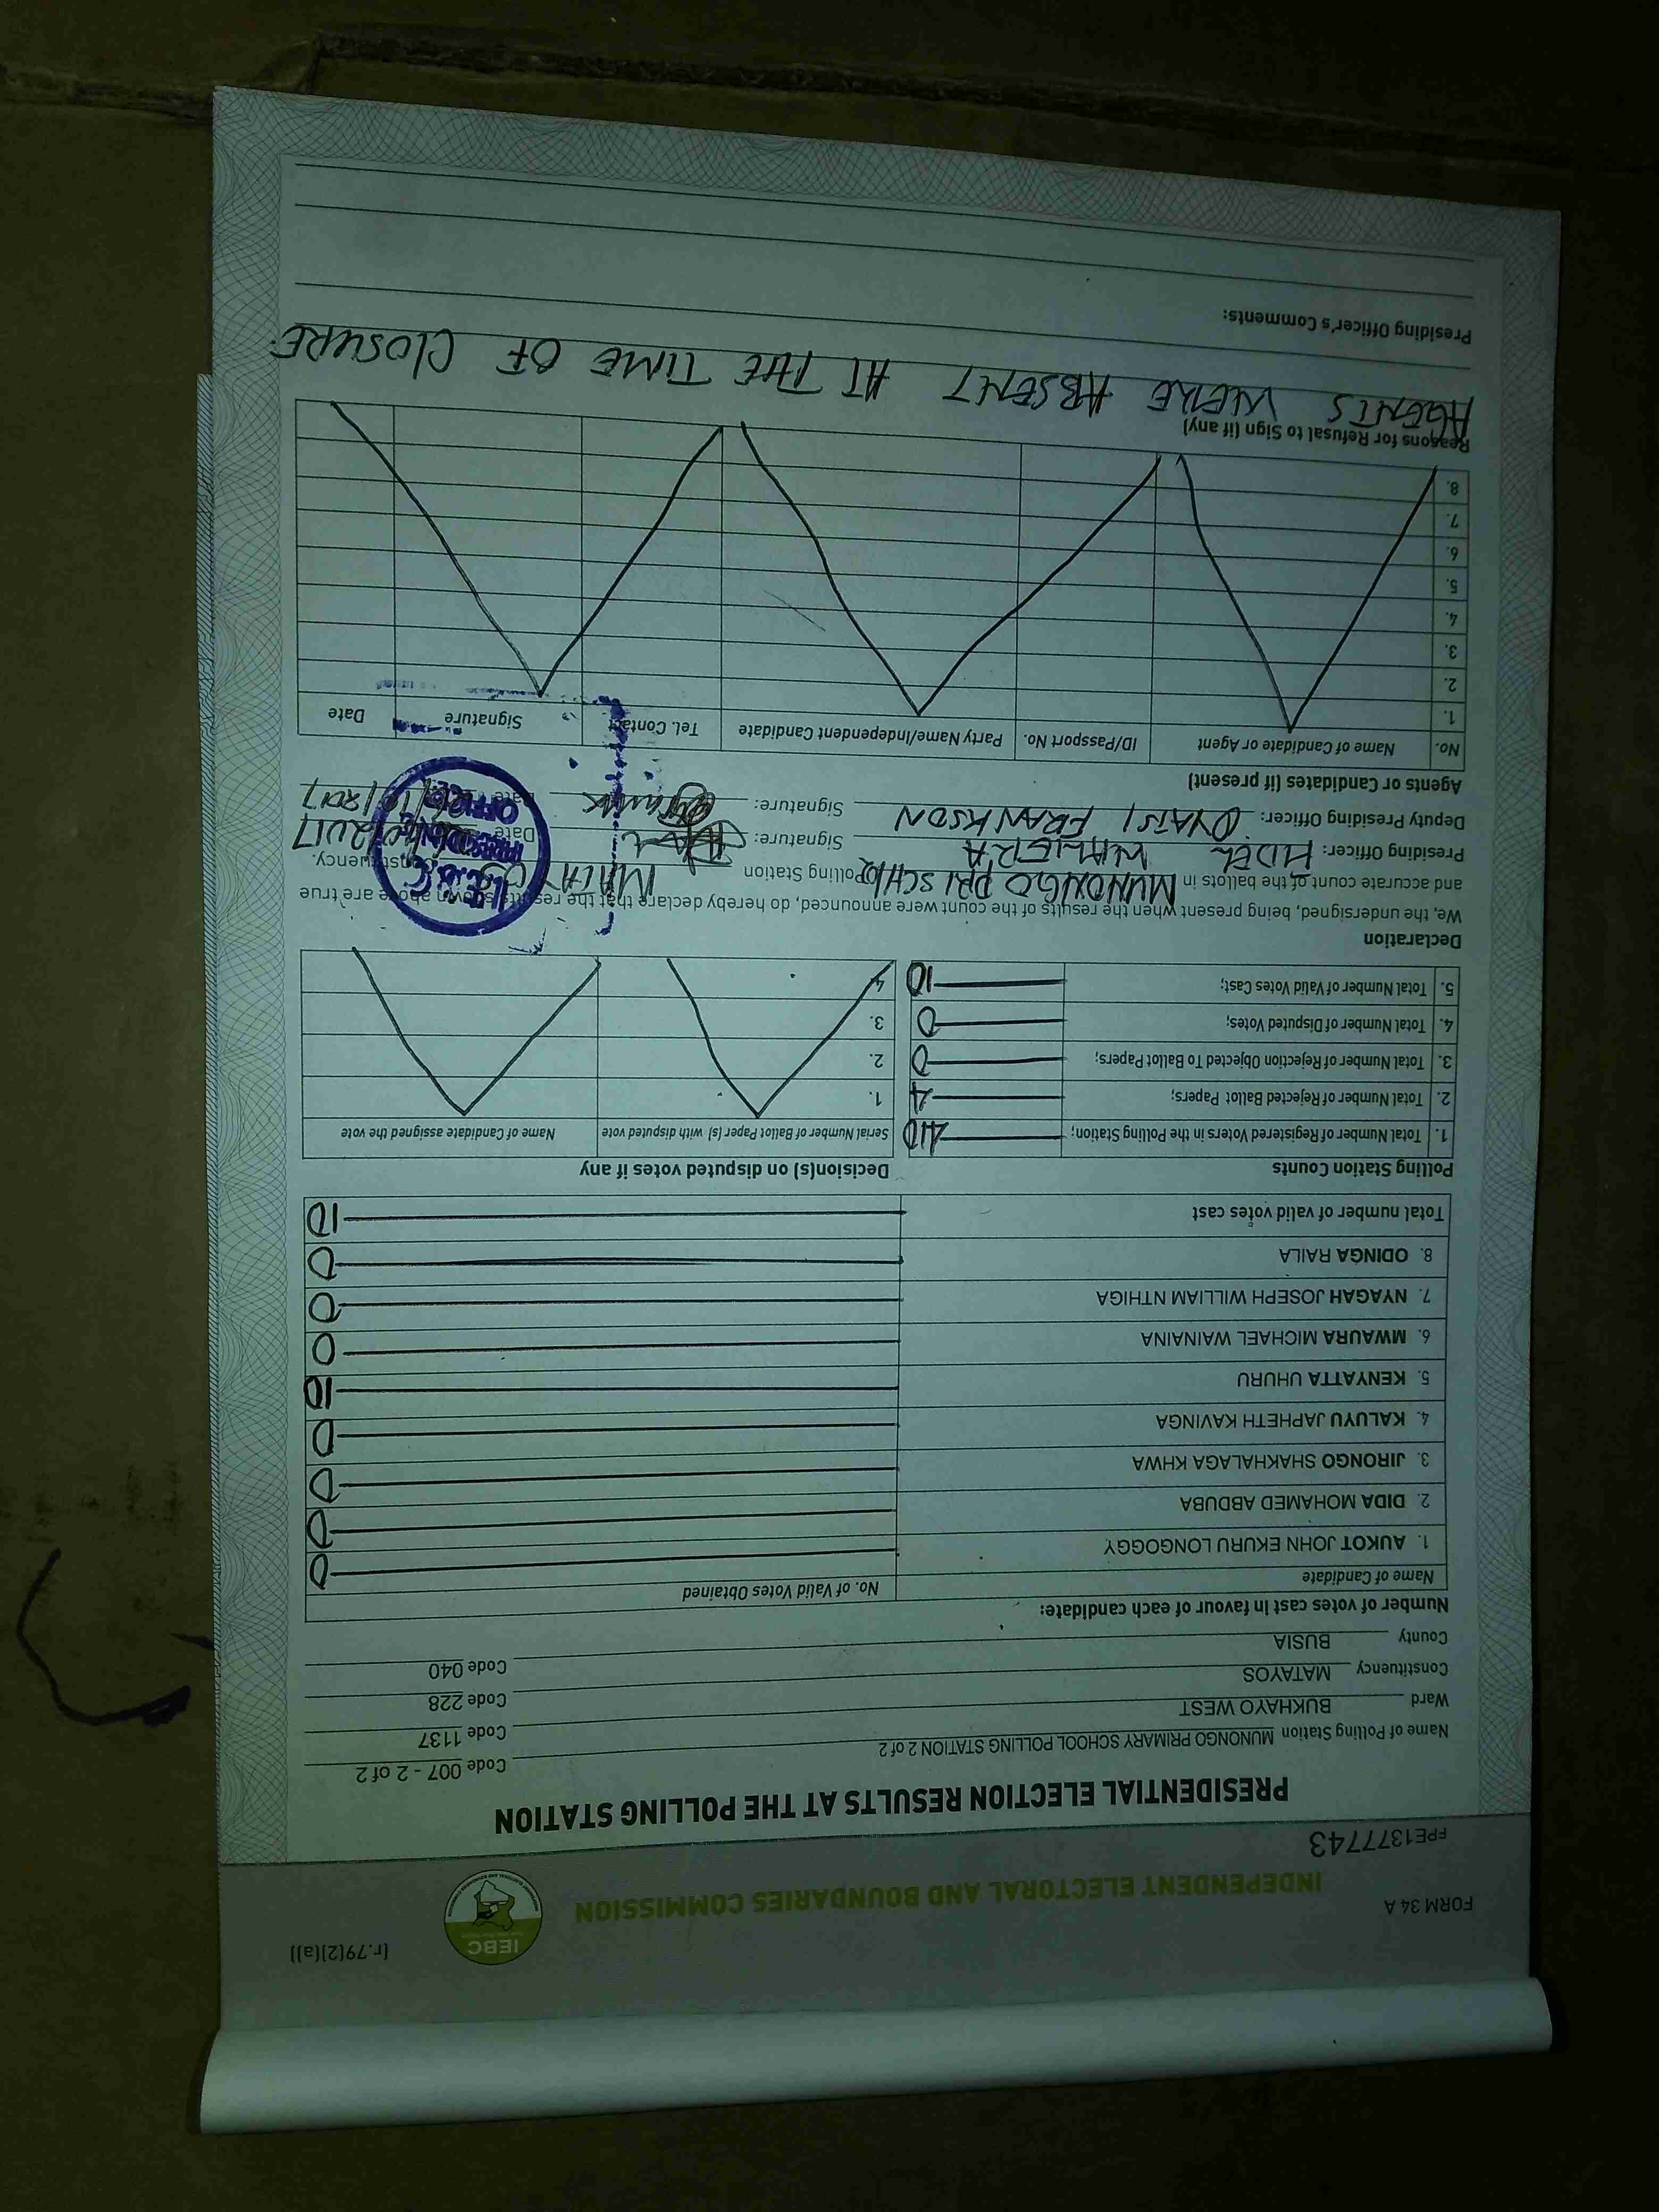 FORM 34 A
(r.79(2)(a))
INDEPENDENT ELECTORAL AND BOUNDARIES COMMISSION
IEBC
FPE1377743
PRESIDENTIAL ELECTION RESULTS AT THE POLLING STATION
Name of Polling Station MUNONGO PRIMARY SCHOOL POLLING STATION 2 of 2 Code 007 - 2 of 2
Ward BUKHAYO WEST Code 1137
Constituency MATAYOS Code 228
County BUSIA Code 040
Number of votes cast in favour of each candidate:
Name of Candidate No. of Valid Votes Obtained
1. AUKOT JOHN EKURU LONGOGGY 0
2. DIDA MOHAMED ABDUBA 0
3. JIRONGO SHAKHALAGA KHWA 0
4. KALUYU JAPHETH KAVINGA 0
5. KENYATTA UHURU 10
6. MWAURA MICHAEL WAINAINA 0
7. NYAGAH JOSEPH WILLIAM NTHIGA 0
8. ODINGA RAILA 0
Total number of valid votes cast 10
Polling Station Counts
1. Total Number of Registered Voters in the Polling Station; 410
2. Total Number of Rejected Ballot Papers; 4
3. Total Number of Rejection Objected To Ballot Papers; 0
4. Total Number of Disputed Votes; 0
5. Total Number of Valid Votes Cast; 10
Decision(s) on disputed votes if any
Serial Number of Ballot Paper (s) with disputed vote Name of Candidate assigned the vote
1.
2.
3.
4.
Declaration
We, the undersigned, being present when the results of the count were announced, do hereby declare that the results shown above are true
and accurate count of the ballots in MUNONGO PRI SCH Polling Station MATAYOS Constituency.
Presiding Officer: FIDEL WALIERA Signature: Date
Deputy Presiding Officer: OYATSI FRANKSON Signature: Date
I.E.B.C
PRESIDING
OFFICER
Agents or Candidates (if present)
No. Name of Candidate or Agent ID/Passport No. Party Name/Independent Candidate Tel. Contact Signature Date
1.
2.
3.
4.
5.
6.
7.
8.
Reasons for Refusal to Sign (if any)
AGENTS WERE ABSENT AT THE TIME OF CLOSURE.
Presiding Officer's Comments: